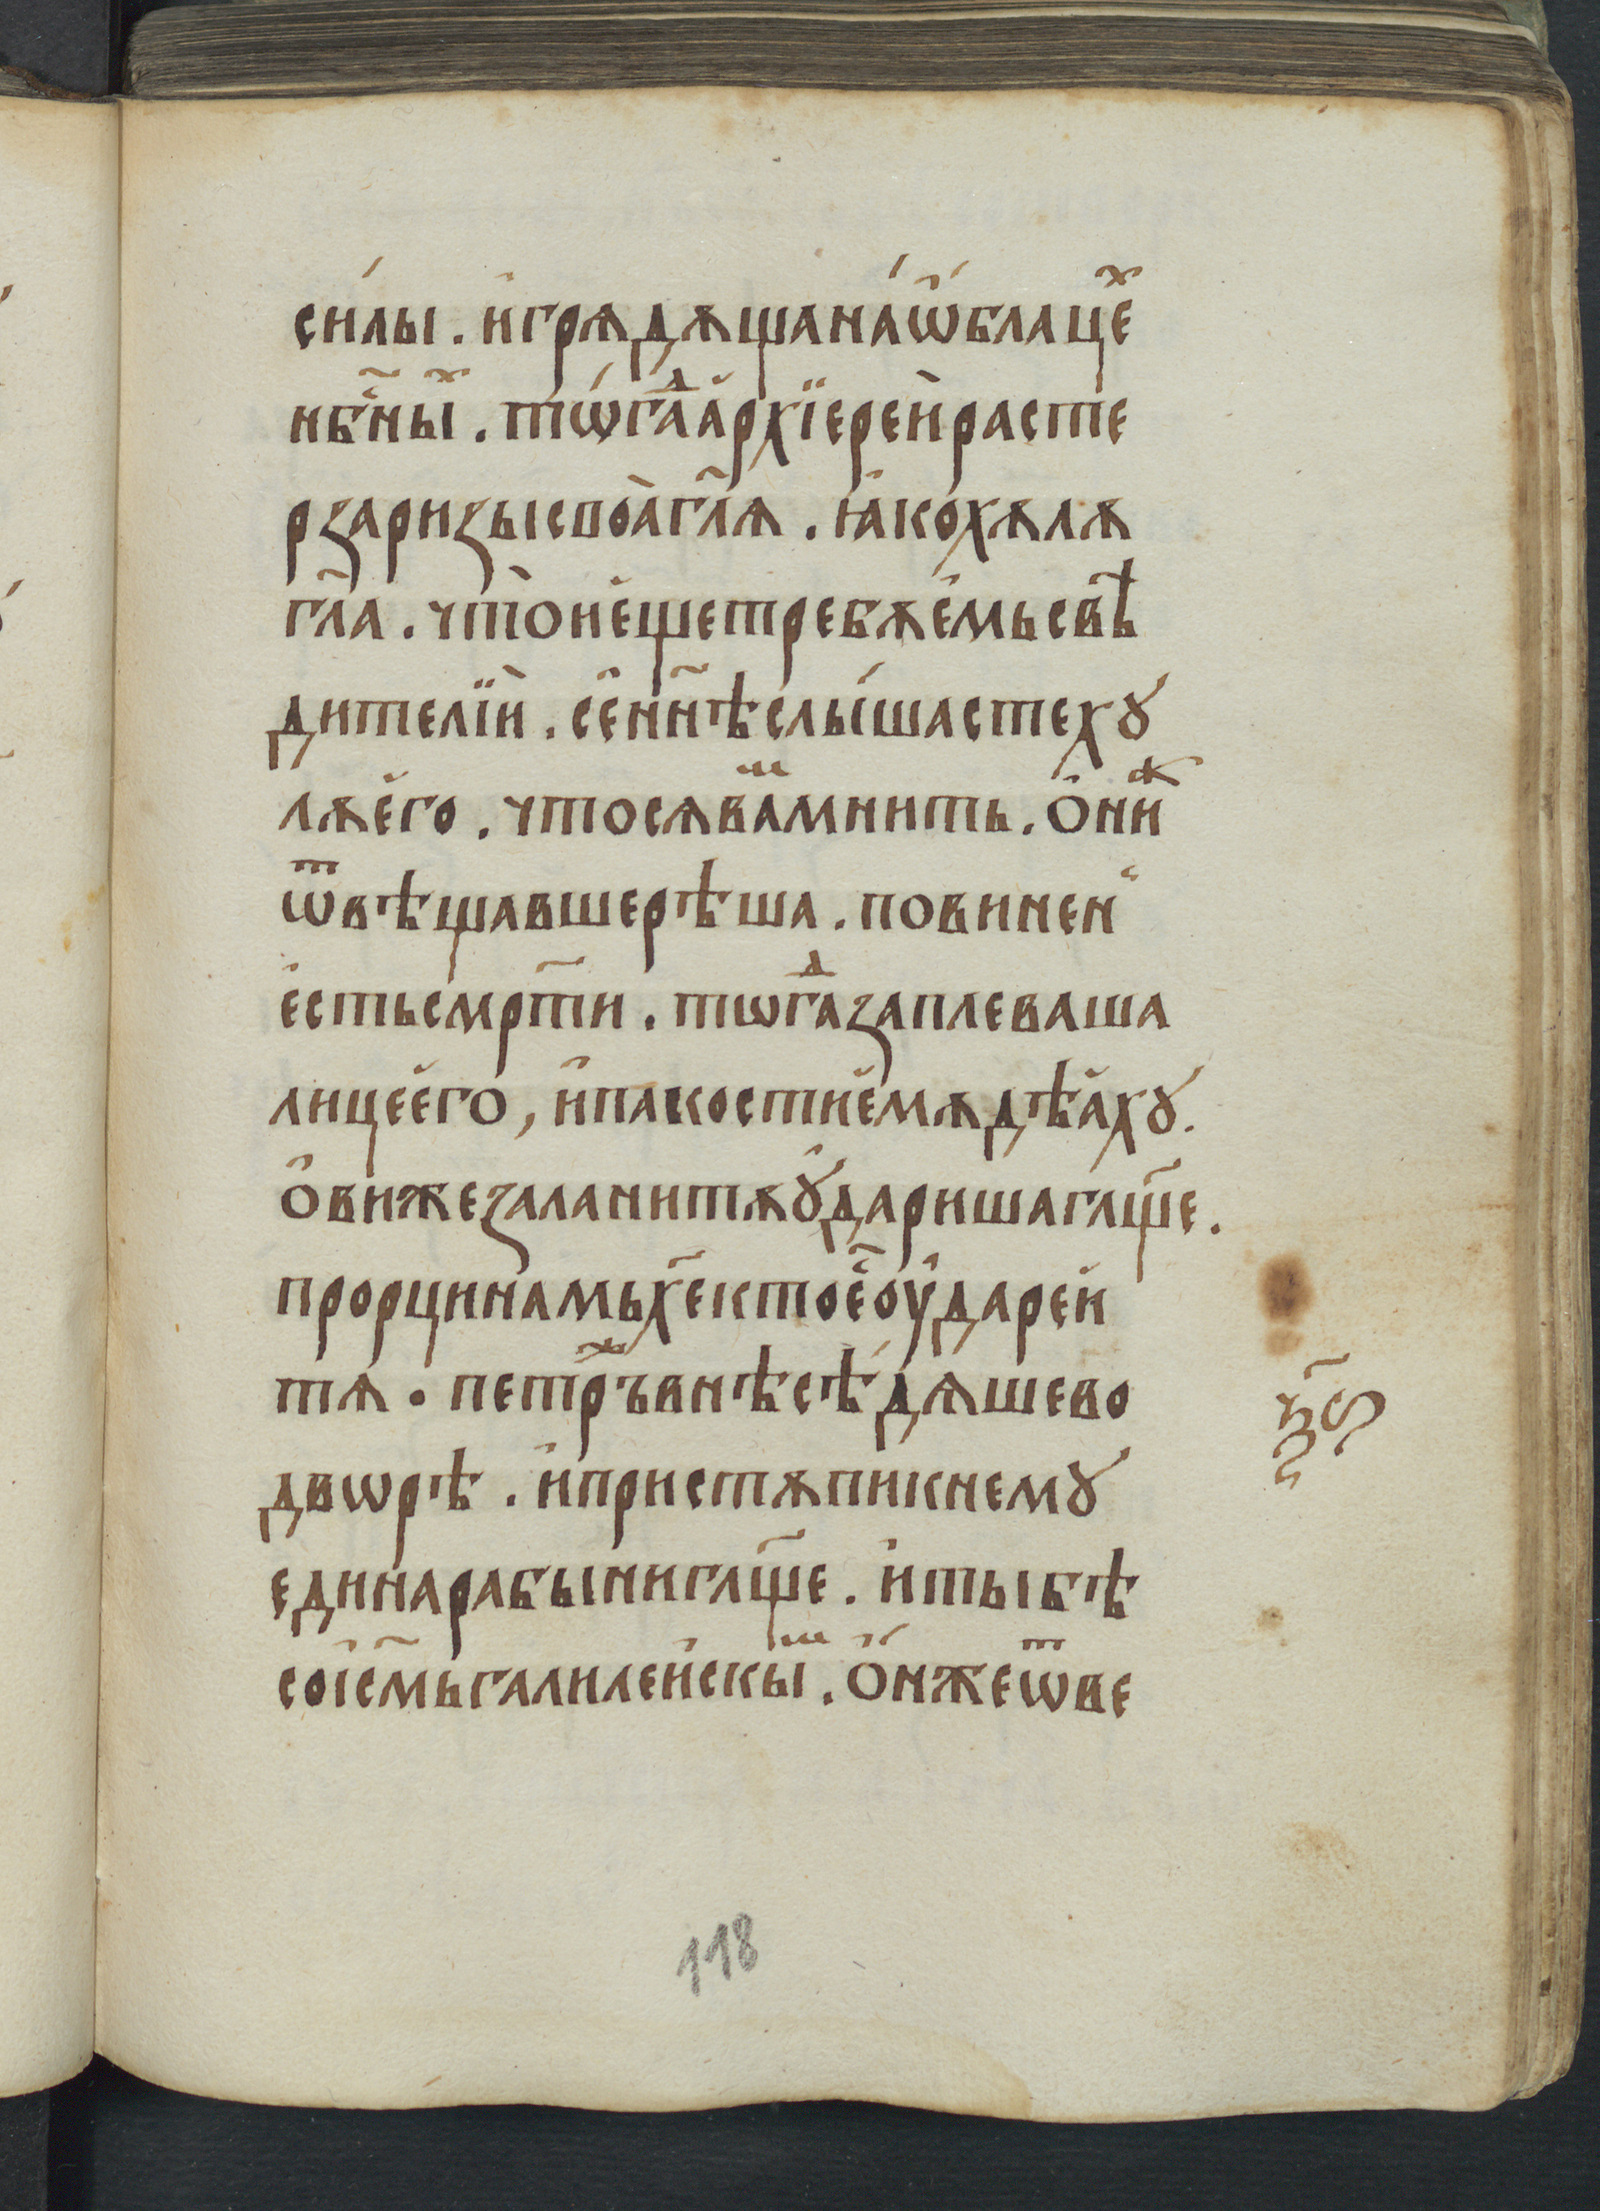 си́лы . и҆грѧдѫщана́ѡ҆блаце҆ⷯ
нб҃ⷭ҇ныⷯ . тѡ́гаⷣа҆рхїере́йрасте
рзаризысвоѧ҆гл҃ѧ . ꙗ҆кохѫлѫ
гл҃а . что̀не҆щетребѫе҆мьсвѣ
дителїи . се҆нн҃ѣслы́шастехꙋ
лѫе҆го . чтосѧва́мⷨнить . о҆ниⷤ
ѿвѣщавшерѣша . повинен
е҆стьсмр҃ти . тѡгаⷣзаплеваша
лицее҆го , и҆пакостие҆мѫдѣа҆хꙋ .
о҆вижезаланитѫꙋ҆даришагл҃ще .
прорцинамьх҃ектое҆ⷭ҇оу҆даре́и
тѧ . петрⷤъвнѣсѣ́дѧшево
двѡрѣ . и҆пристѫпикнемꙋ
единарабынигл҃ще . и҆тыбѣ
соі҆с҃мьгалиле́искыⷨ . о҆́нжеѿве
рз҃ѕ
118